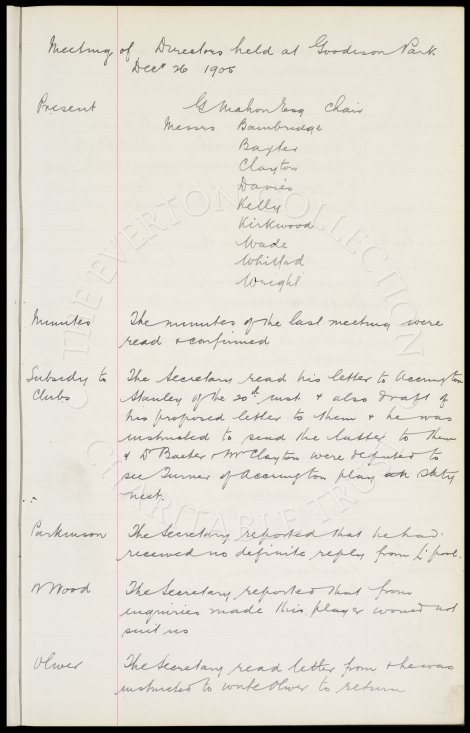 Meeting of Directors held at Goodison Park.
Decr 26 1905
Present G Mahon Esq Chair
Messrs Bainbridge
Baxter
Clayton
Davies
Kelly
Kirkwood
Wade
Whitford
Wright
Minutes The minutes of the last meeting were
read & confirmed
Subsidy to The Secretary read his letter to Accrington
Clubs Stanley of the 20th inst & also draft of
his proposed letter to them & he was
instructed to send the latter to them
& Dr Baxter & Mr Clayton were deputed to
see Turner of Accrington play on Saty
next.
Parkinson The Secretary reported that he had
received no definite reply from L'pool.
W Wood The Secretary reported that from
enquiries made this player would not
suit us
Oliver The Secretary read letter from & he was
instructed to write Oliver to return
THE EVERTON COLLECTION
CHARITABLE TRUST